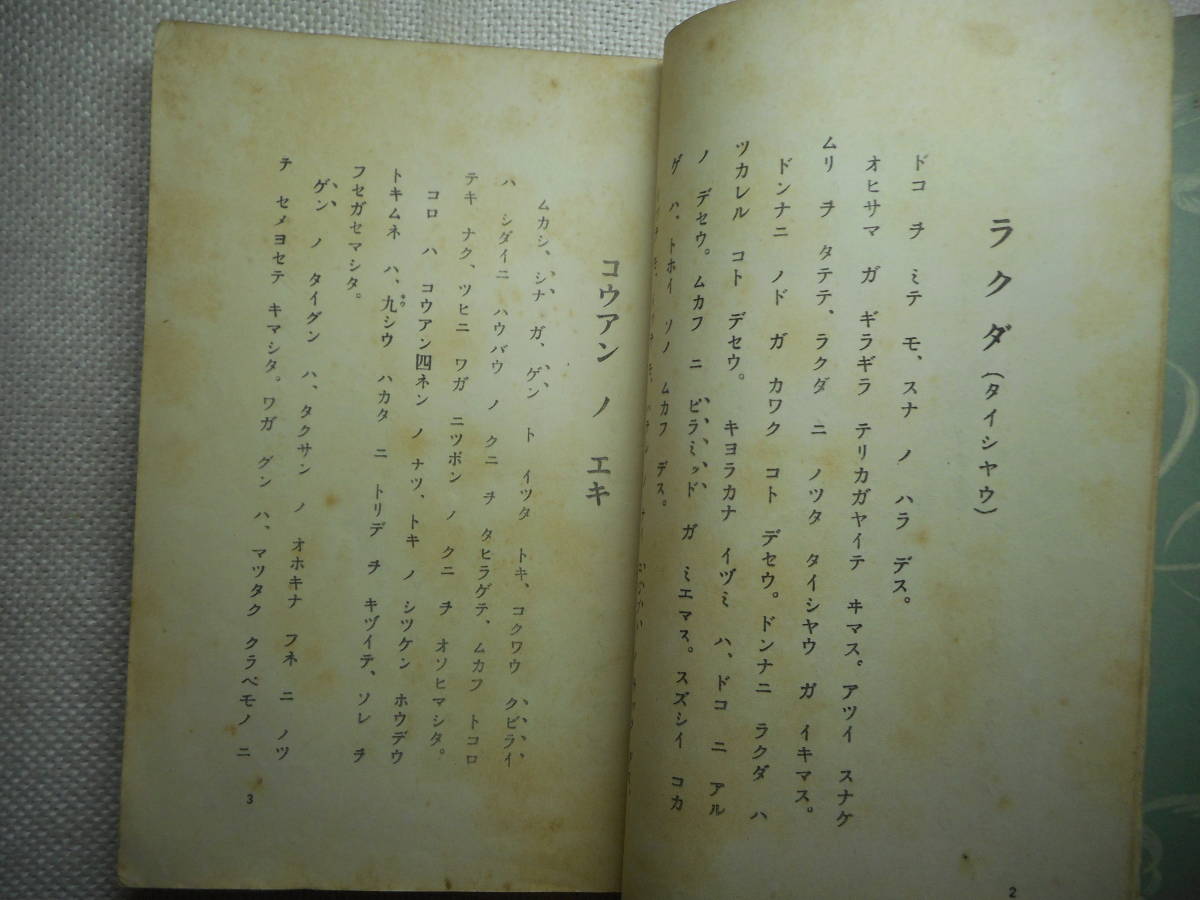 ラクダ(タイシヤウ)
ドコ ヲ ミテ モ、スナ ノ ハラ デス。
オヒサマ ガ ギラギラ テリカガヤイテ ヰマス。アツイ スナケ
ムリ ヲ タテテ、ラクダ ニ ノツタ タイシヤウ ガ イキマス。
ドンナニ ノド ガ カワク コト デセウ。ドンナニ ラクダ ハ
ツカレル コト デセウ。 キヨラカナ イヅミ ハ、ドコ ニ アル
ノ デセウ。ムカフ ニ ピラミッド ガ ミエマス。スズシイ コカ
ゲ ハ、トホイ ソノ ムカフ デス。
2
コウアン ノ エキ
ムカシ、シナ ガ、ゲン ト イツタ トキ、コクワウ クビライ
ハ シダイニ ハウバウ ノ クニ ヲ タヒラゲテ、ムカフ トコロ
テキ ナク、ツヒニ ワガ ニツポン ノ クニ ヲ オソヒマシタ。
コロ ハ コウアン四ネン ノ ナツ、トキ ノ シツケン ホウデウ
トキムネ ハ、九シウ ハカタ ニ トリデ ヲ キヅイテ、ソレ ヲ
フセガセマシタ。
ゲン ノ タイグン ハ、タクサン ノ オホキナ フネ ニ ノツ
テ セメヨセテ キマシタ。ワガ グン ハ、マツタク クラベモノ ニ
3